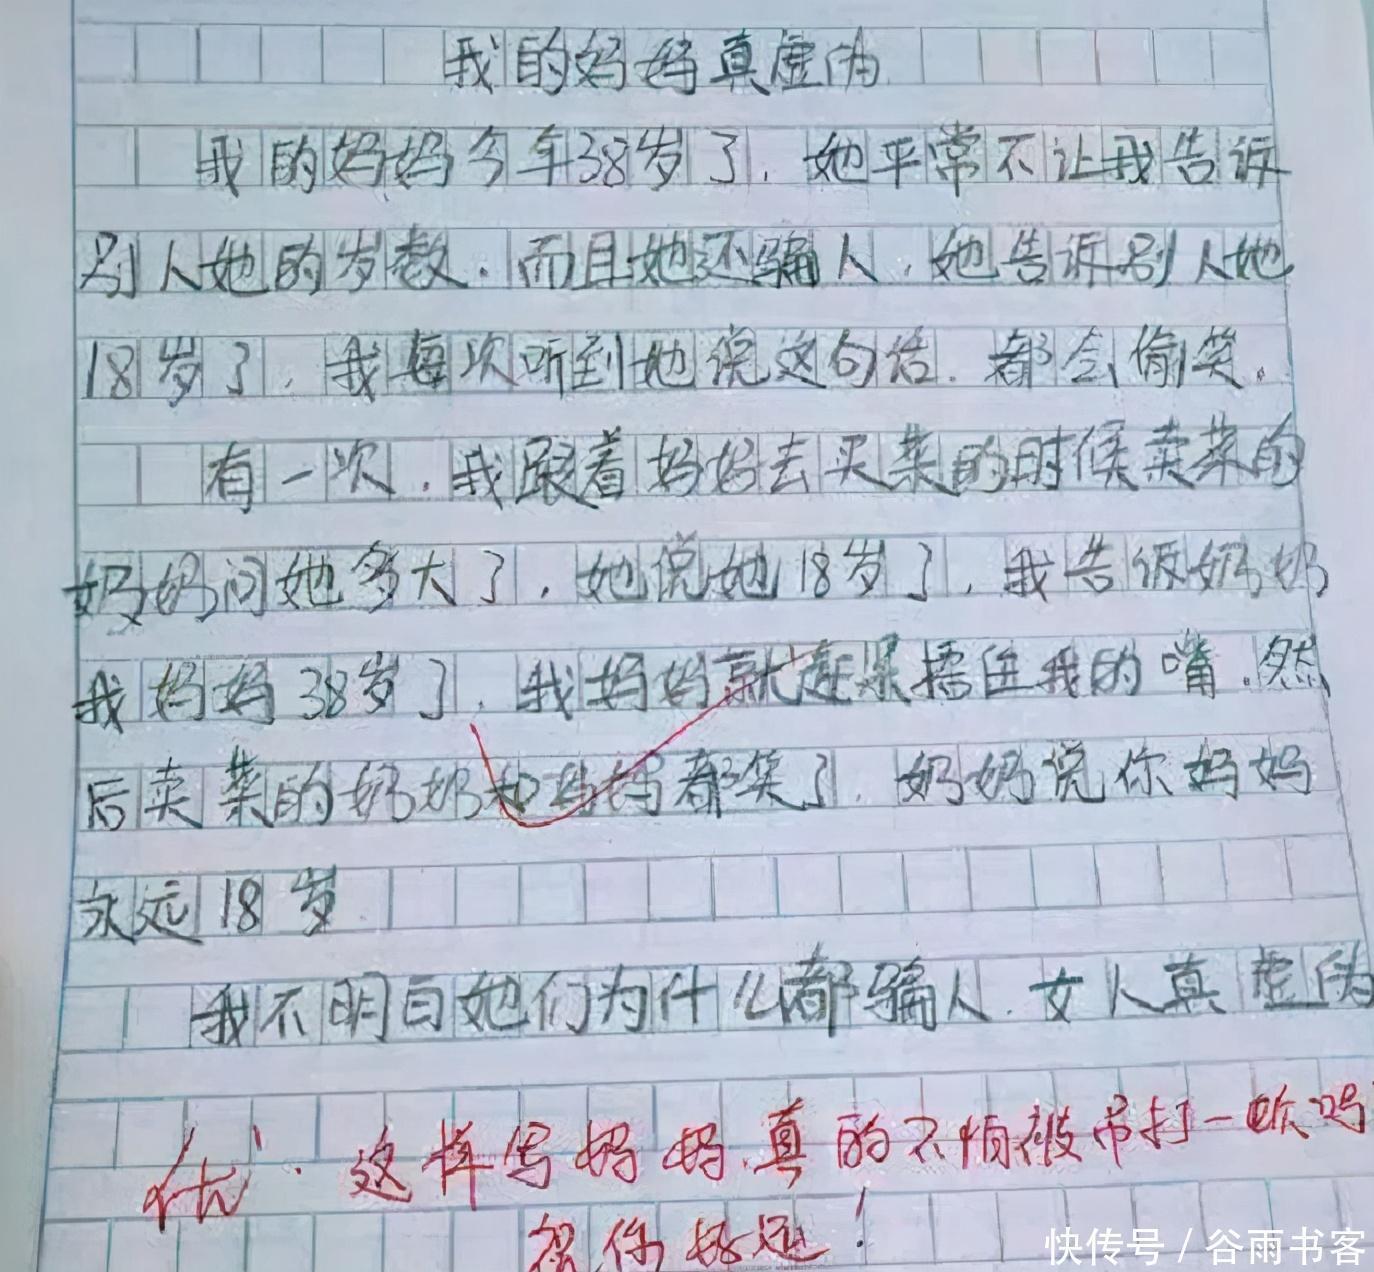 我的妈妈真虚伪
我的妈妈今年38岁了.她平常不让我告诉
别人她的岁数.而且她还骗人.她告诉别人她
18岁了.我每次听到她说这句话.都会偷笑。
有一次.我跟着妈妈去买菜的时候卖菜的
奶奶问她多大了.她说她18岁了.我告诉奶奶
我妈妈38岁了.我妈妈就赶紧捂住我的嘴.然
后卖菜的奶奶和妈妈都笑了.奶奶说你妈妈
永远18岁
我不明白她们为什么都骗人.女人真虚伪
优.这样写妈妈.真的不怕被吊打一顿吗
祝你好运!
快传号/谷雨书客